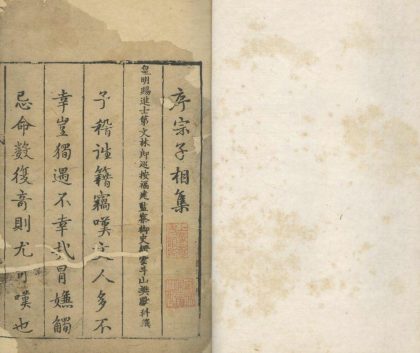 序宗子相集
皇明賜進士第文林郎巡按福建監察御史縉雲斗山樊獻科
予稽諸籍竊嘆文人多不
幸豈獨遇不幸哉冒嫵觸
忌命數復奇則尤可嘆也